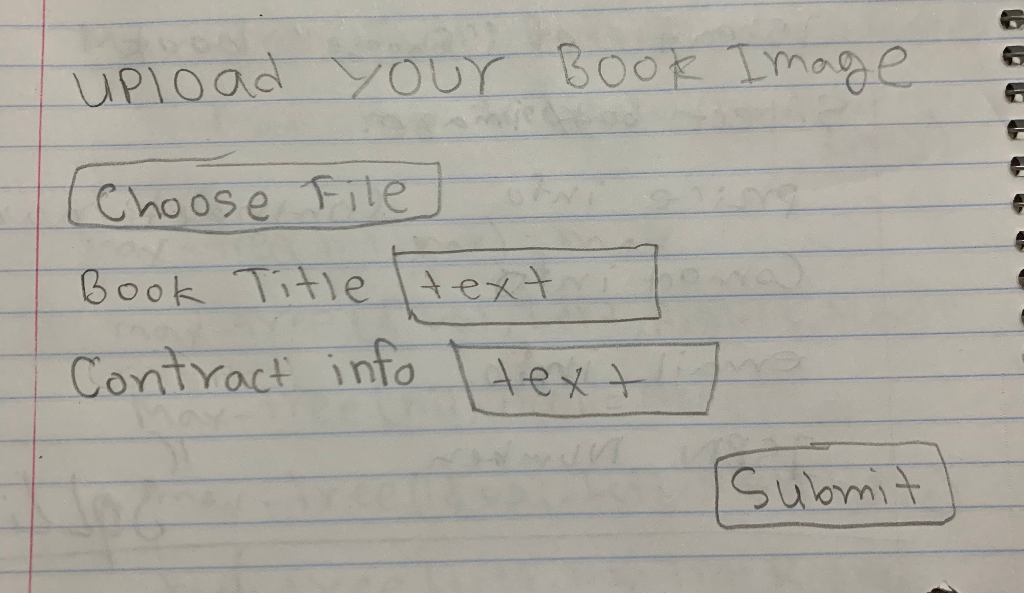 UPload Your Book Image
Choose File
Book Title text
Contract info text
Submit